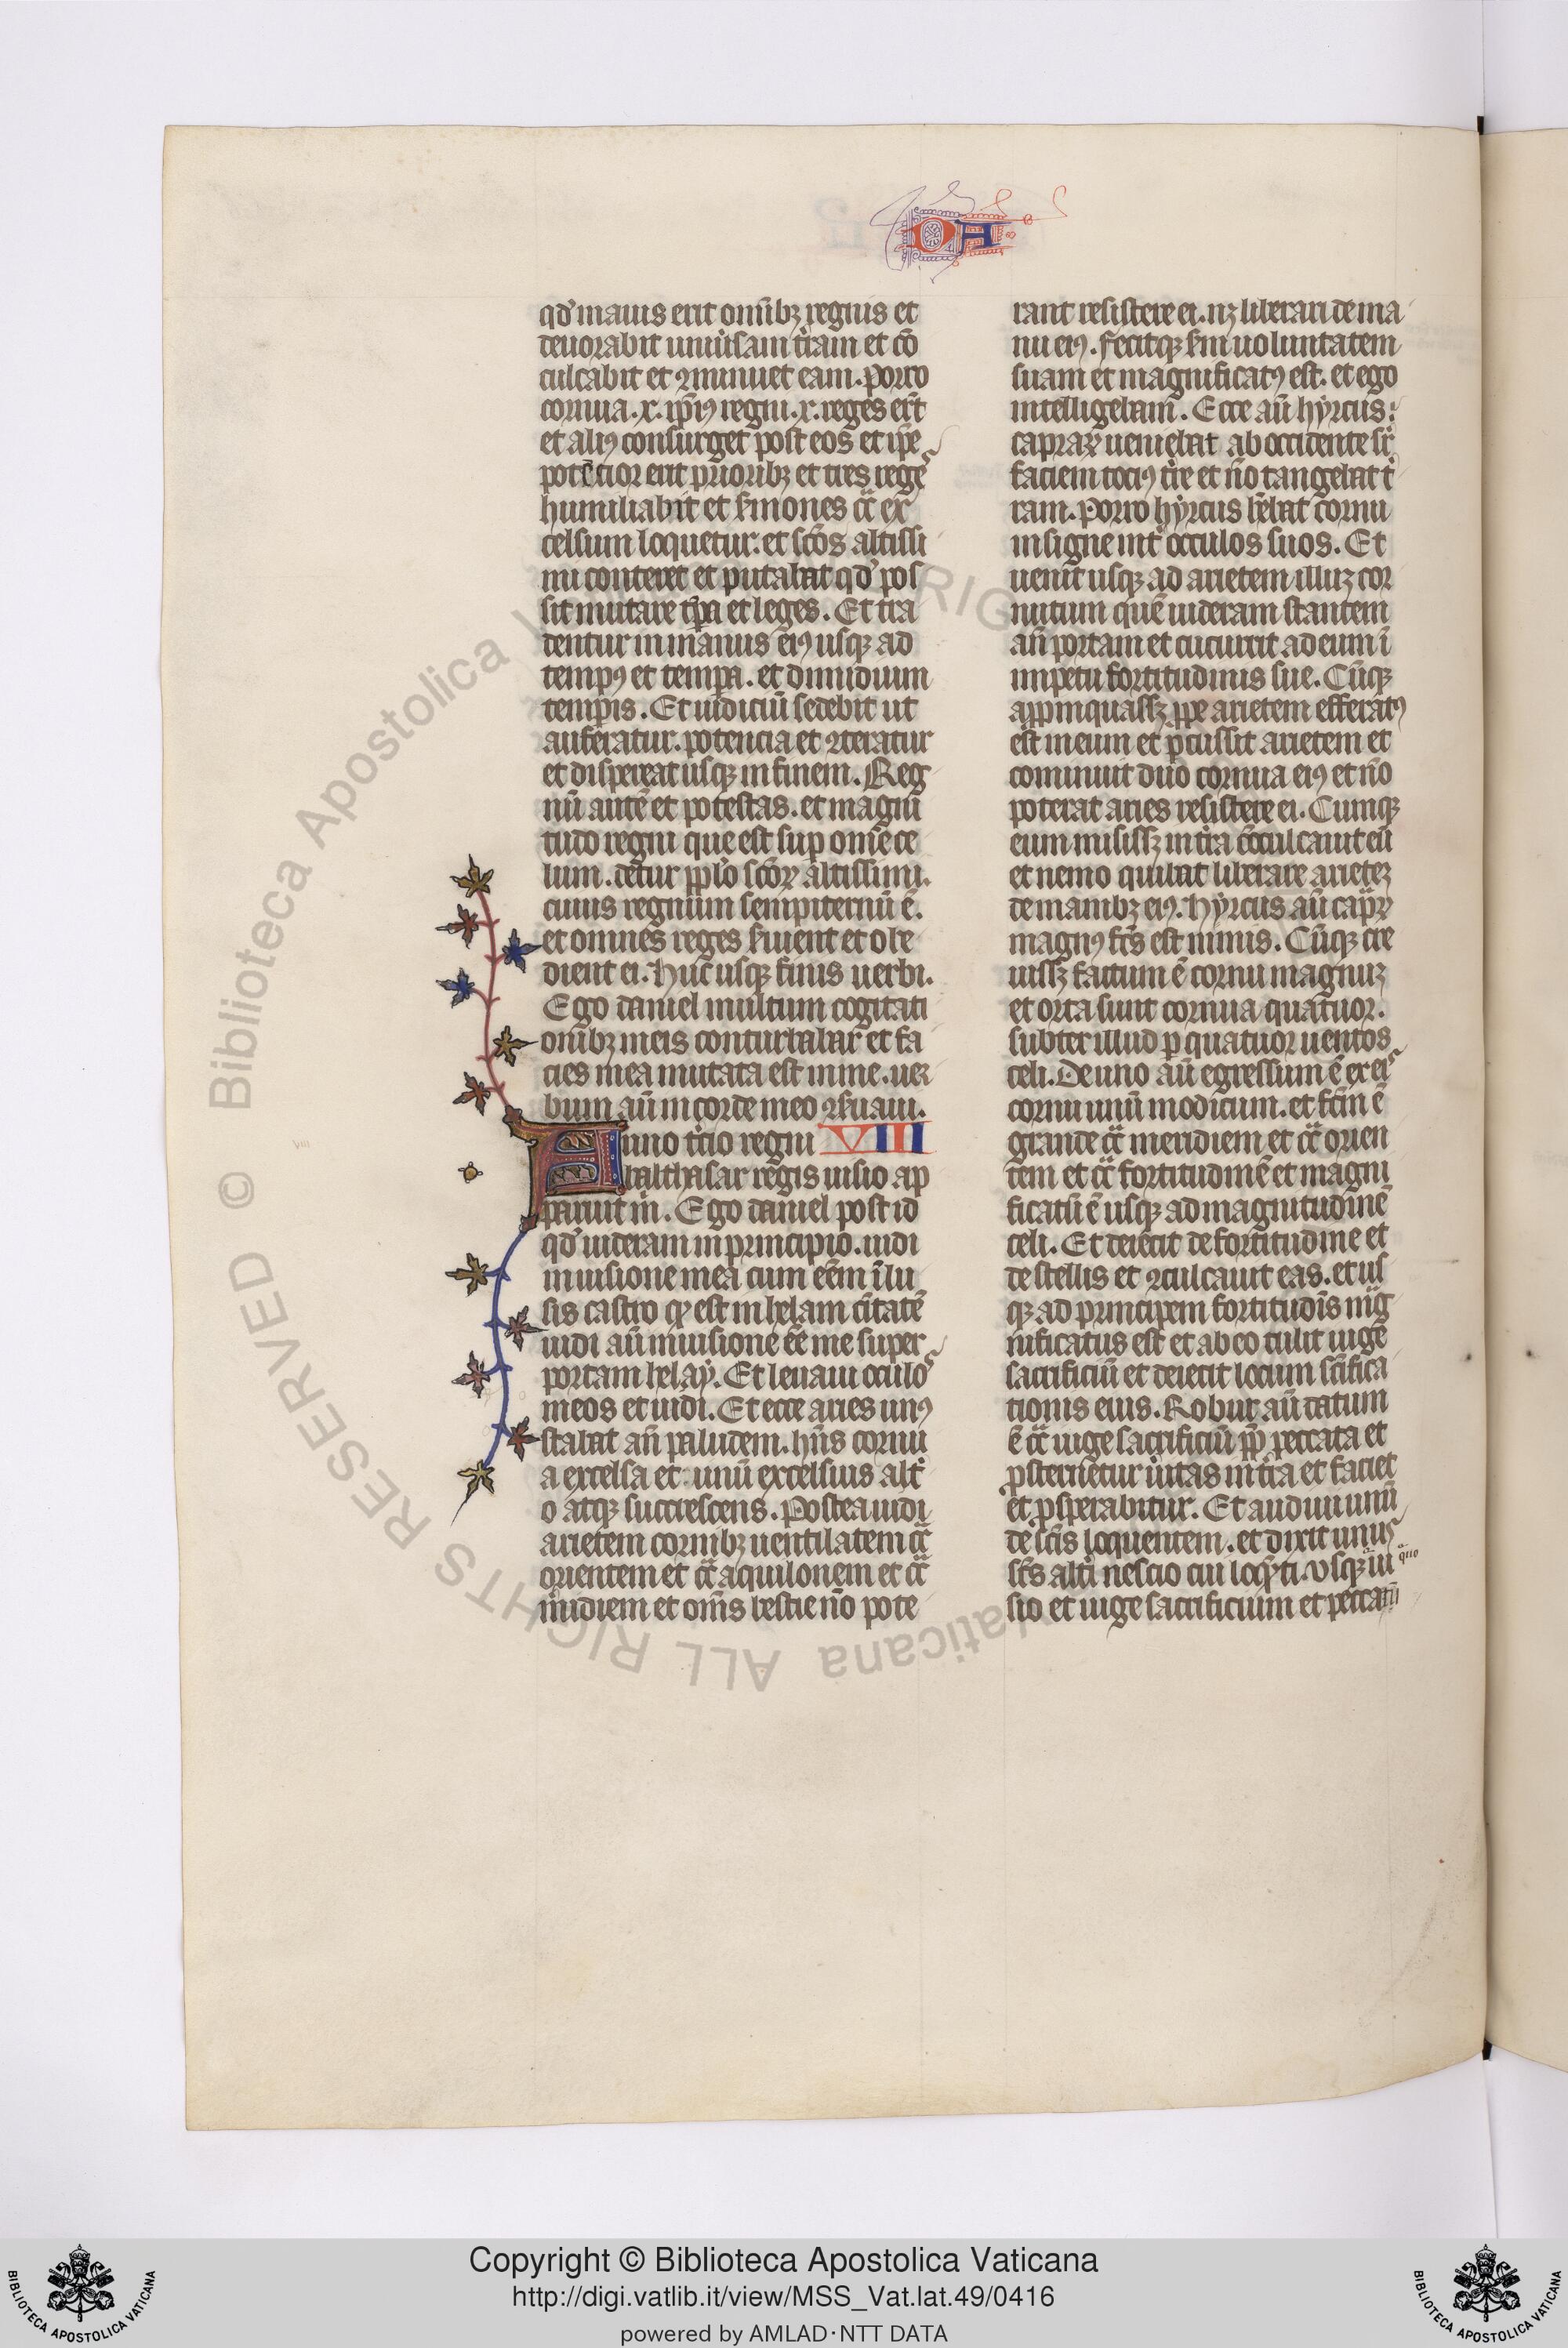 DA
qd' maius erit omībꝫ regnis et
deuorabit uniu'sam t'ram et cō
culcabit et ꝯminuet eam. Porro
cornua .x. ip̄iꝰ regni .x. reges er̄t
et aliꝰ consurget post eos et ip̄e
potētior erit prioribꝫ et tres reges
humiliabit et s'mones cͣ ex
celsum loquetur. et scōs altissi
mi conteret et putabat qd' pos
sit mutare tp̄a et leges. Et tra
dentur in manus eiꝰ usqꝫ ad
tempꝰ et temp̄a. et dimidium
temp̄is. Et iudiciū sedebit ut
auferatur. potencia et ꝯteratur
et dispereat usqꝫ in finem. Reg
nū autē et potestas. et magni
tudo regni que est sup om̄e ce
lum. detur pp̄lo scōꝝ altissimi.
cuius regnum sempiternū ē.
et omnes reges s'uient et obe
dient ei. Huc usqꝫ finis uerbi.
Ego daniel multum cogitati
onibꝫ meis conturbabar et fa
cies mea mutata est in me. uer
bum aū in corde meo ꝯs'uaui.
Anno t'cio regni VIII
balthasar regis uisio ap
paruit m̄. Ego daniel post id
qd' uideram in principio. uidi
in uisione mea cum eēm ī su
sis castro qꝫ est in helam ciuitatē
uidi aū in uisione eē me super
portam helaẏ. Et leuaui oculos
meos et uidi. Et ecce aries unꝰ
stabat an̄ paludem. hn̄s cornu
a excelsa et unū excelsius alt'
o atqꝫ succrescens. Postea uidi
arietem cornibꝫ uentilatem cͣ
orientem et cͣ aquilonem et cͣ
m'idiem et om̄s bestie nō pote
rant resistere ei. nꝫ liberari de ma
nu eiꝰ. Fecitqꝫ s'm uoluntatem
suam et magnificatꝰ est. et ego
intelligebam. Ecce aū hẏrcus
capraꝝ ueniebat ab occidente sr̄
faciem tociꝰ t're et nō tangebat t'
ram. Porro hẏrcus h'ebat cornu
insigne int' occulos suos. Et
uenit usqꝫ ad arietem illuꝫ cor
nutum quē uideram stantem
an̄ portam et cucurrit ad eum ī
impetu fortitudinis sue. Cūqꝫ
app̄inquassꝫ p̄pe arietem efferatꝰ
est in eum et p̄cussit arietem et
cominuit duo cornua eiꝰ et nō
poterat aries resistere ei. Cumqꝫ
eum misissꝫ in t'ra cōculcauit eū
et nemo quibat liberare arieteꝫ
de manibꝫ eiꝰ. Hẏrcus aū capͣꝝ
magnꝰ fcs̄ est nimis. Cūqꝫ cre
uissꝫ fractum ē cornu magnuꝫ
et orta sunt cornua quatuor.
subter illud p quatuor uentos
celi. De uno aū egressum ē ex eis
cornu unū modicum. et fcm̄ ē
grande cͣ meridiem et cͣ orien
tem et cͣ fortitudinē et magni
ficatū ē usqꝫ ad magnitudinē
celi. Et deiecit de fortitudine et
de stellis et ꝯculcauit eas. et us
qꝫ ad principem fortitudīs mag
nificatus est et ab eo tulit iuge
sacrificiū et deiecit locum scīfica
tionis eius. Robur aū datum
ē cͣ iuge sacrificiū pp̄ peccata et
p̄sternetur u'itas in t'ra et faciet
et p̄sperabitur. Et audiui unū
de scīs loquentem. et dixit unus
scs̄ alt'i nescio cui loqn̄ti. Vsqꝫ quo ui
sio et iuge sacrificium et peccatū
VIII
Copyright © Biblioteca Apostolica Vaticana
http://digi.vatlib.it/view/MSS_Vat.lat.49/0416
powered by AMLAD·NTT DATA
BIBLIOTECA APOSTOLICA VATICANA
BIBLIOTECA APOSTOLICA VATICANA
© Biblioteca Apostolica Vaticana ALL RIGHTS RESERVED